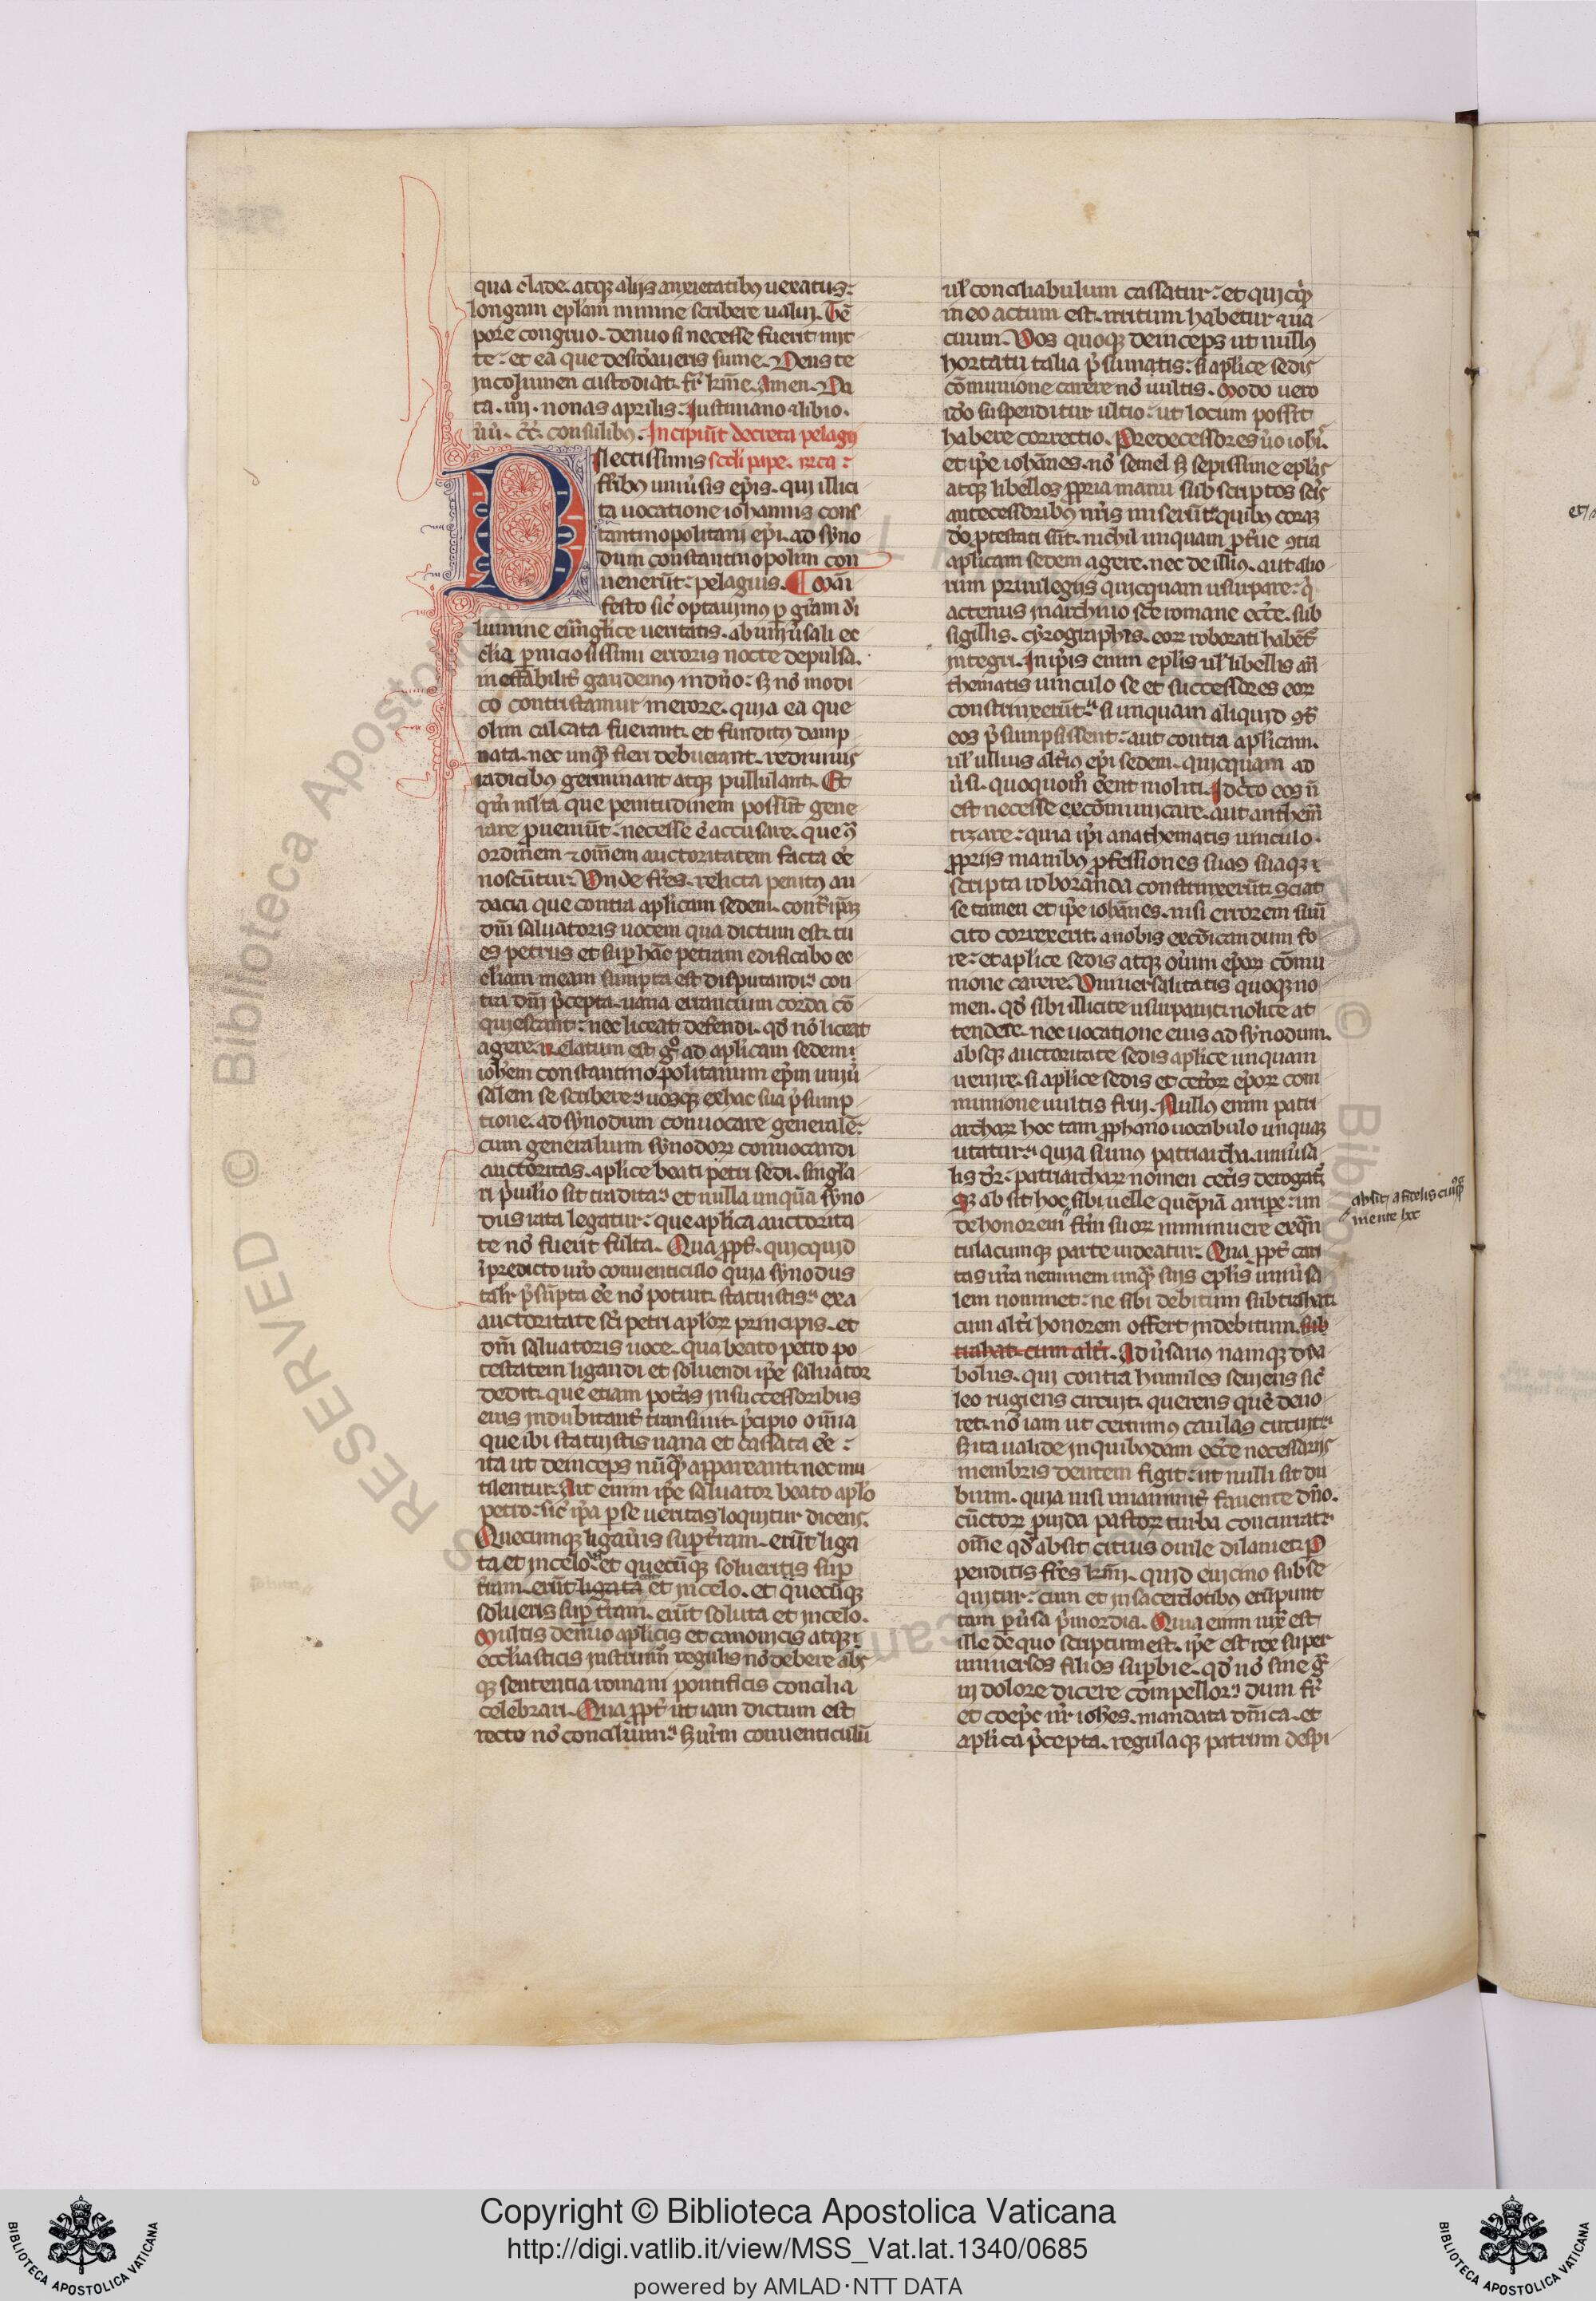 qua clade. atqꝫ alijs anxietatibꝰ uexatus:
longam ep̃lam minime scribere ualui. Tẽ
pore congruo. denuo si necesse fuerit mit
te: et ea que desid̾aueris sume. Deus te
incolumen custodiat. fr̃ km̃e. Amen. Da
ta. iiij. nonas aprilis. Iustiniano
consulibꝰ. Incipiũt decreta pelagij
Dilectissimis sc̃di pape.
fr̃ibꝰ uniũsis ep̃is. qui illici
ta uocatione iohannis cons
tantinopolitani ep̃i. ad syno
dum constantinopolim con
uenerũt: pelagius. Mani
festo sic̃ optauimꝰ ꝑ gr̃am d̃i
lumine euãglice ueritatis. ab uniũsali ec
clia ꝑniciosissimi erroris nocte depulsa.
ineffabilit̾ gaudemꝰ in dño: sꝫ nõ modi
co contristamur merore. quia ea que
olim calcata fuerant. et funditꝰ damp
nata. nec unqꝫ fieri debuerant. rediuiuis
radicibꝰ germinant atqꝫ pullulant. Et
qm̃ multa que penitudinem possũt gene
rare ꝓueniũt: necesse ẽ accusare. que ꝯ̃
ordinem ⁊ om̃em auctoritatem facta eẽ
noscũtur. Vnde fr̃es. relicta penitꝰ au
dacia que contra apl̃icam sedem. cont̾ ip̃iꝰ
dñi saluatoris uocem qua dictum est. tu
es petrus et suꝑ hãc petram edificabo ec
cliam meam sumpta est disputandi: con
tra dñi p̃cepta. uana errancium corda cõ
quiescant: nec liceat defendi. qd̾ nõ liceat
agere. Relatum est gͦ ad apl̃icam sedem:
ioh̃em constantinopolitanum ep̃m uniũ
salem se scribere: uosqꝫ ex hac sua p̃sump
tione. ad synodum conuocare generalẽ:
cum generalium synodoꝝ conuocandi
auctoritas. apl̃ice beati petri sedi. singla
ri p̃uilio sit tradita: et nulla unquã syno
dus rata legatur: que apl̃ica auctorita
te nõ fuerit fulta. Qua ꝓpt̾. quicquid
ĩ predicto ur̃o conuenticulo quia synodus
talit̾ p̃sũpta eẽ nõ potuit. statuistis: ex a
auctoritate sc̃i petri apl̃oꝝ principis. et
dñi saluatoris uoce. qua beato petro po
testatem ligandi et soluendi ip̃e saluator
dedit. que etiam potẽas in successoribus
eius indubitant̾ transiuit. p̃cipio om̃ia
que ibi statuistis uana et cassata eẽ:
ita ut deinceps nũqꝫ appareant. nec mu
tilentur. Ait enim ip̃e saluator beato apl̃o
petro: sic̃ ip̃a ꝑ se ueritas loquitur dicens.
Quecumqꝫ ligaũis suꝑ t̾ram. erũt liga
ta et in celo. et quecũqꝫ solueritis suꝑ
t̾ram. erũt ligata et in celo. et quecũqꝫ
solueris suꝑ t̾ram. erũt soluta et in celo.
Multis denuo apl̃icis et canonicis atqꝫ
ecclesiasticis instruim̃ regulis nõ debere abs
qꝫ sententia romani pontificis concilia
celebrari. Qua ꝓpt̾ ut iam dictum est
recto nõ concilium: sꝫ ur̃m conuenticulũ
ul̃ conciliabulum cassatur: et quicqͥd
in eo actum est. irritum habetur ⁊ ua
cuum. Vos quoqꝫ deinceps ut nullꝰ
hortatu talia p̃sumatis: si apl̃ice sedis
cõmunione carere nõ uultis. Modo uero
id̾o suspenditur ultio: ut locum possit
habere correctio. Predecessores ũo ioh̃i.
et ip̃e ioh̃anes. nõ semel sꝫ sepissime ep̃las
atqꝫ libellos ꝓpria manu subscriptos sc̃is
antecessoribꝰ nr̃is miserũt: quibꝰ coraꝫ
d̾o ꝓtestati sũt. nichil unquam ꝓt̾ue ꝯtra
apl̃icam sedem agere. nec de illiꝰ. aut alio
rum priuilegijs quicquam usurpare: q̃
actenus in archiuo sc̃e romane ecc̃e. sub
sigillis. cyrographis. eoꝝ roborati habẽt̾
integri. In ip̃is enim ep̃lis ul̃ libellis an̾
thematis uinculo se et successores eoꝝ
constrinxerũt: si unquam aliquid ꝯt̾
eos p̃sumpsissent: aut contra apl̃icam.
ul̃ ullius alt̾iꝰ ep̃i sedem. quicquam ad
ũsi. quoquomͦ eẽnt moliti. Idc̾co eos ñ
est necesse excõmunicare. aut anthem̃
tizare: quia ip̃i anathematis uinculo.
ꝓprijs manibꝰ ꝓfessiones suas suaqꝫ
scripta roboranda constrinxerũt. Sciat
se tamen et ip̃e ioh̃anes. nisi errorem suũ
cito correxerit. a nobis excõicandum fo
re: et apl̃ice sedis atqꝫ om̃ium ep̃oꝝ cõmu
nione carere. Vniuersalitatis quoqꝫ no
men. qd̾ sibi illicite usurpauit. nolite at
tendere. nec uocatione eius ad synodum.
absqꝫ auctoritate sedis apl̃ice unquam
uenire. si apl̃ice sedis et cet̾oꝝ ep̃oꝝ com
munione uultis frui. Nullꝰ enim patri
archaꝝ hoc tam ꝓphano uocabulo unquaꝫ
utatur: quia si unꝰ patriarcha. uniũsa
lis d̾r: patriarchaꝝ nomen cet̾is derogat̾.
Sꝫ absit hoc sibi uelle quẽpiã arripe: un
de honorem fr̃m suoꝝ imminuere ex qñ
tulacumqꝫ parte uideatur. Qua ꝓpt̾ cari
tas ur̃a neminem unqꝫ suis ep̃lis uniũsa
lem nominet: ne sibi debitum subtrahat.
cum alt̾i honorem offert indebitum. sub
trahat. cum alt̾i. Adũsariꝰ namqꝫ dya
bolus. qui contra humiles seuiens sic̃
leo rugiens circuit. querens quẽ deuo
ret. nõ iam ut cernimꝰ caulas circuit:
sꝫ ita ualide in quibꝰdam ecc̃e necessarijs
membris dentem figit: ut nulli sit du
bium. quia nisi unanimit̾ fauente dño.
cũctoꝝ ꝓuida pastoꝝ turba concurrat:
om̃e qd̾ absit citius ouile dilaniet. P
penditis fr̃es km̃i. quid e uicino subse
quitur: cum et in sacerdotibꝰ erũpunt
tam ꝑũsa p̃mordia. Quia enim iux̃ est
ille de quo scriptum est. ip̃e est rex super
uniuersos filios suꝑbie. qd̾ nõ sine gͣ
ui dolore dicere compellor: dum fr̃
et coep̃c nr̃ ioh̃es. mandata dñica. et
apl̃ica p̃cepta. regulasqꝫ patrum despi
absit. a fidelis cuiusꝙ
mente hoc
Copyright © Biblioteca Apostolica Vaticana
http://digi.vatlib.it/view/MSS_Vat.lat.1340/0685
powered by AMLAD·NTT DATA
BIBLIOTECA APOSTOLICA VATICANA
BIBLIOTECA APOSTOLICA VATICANA